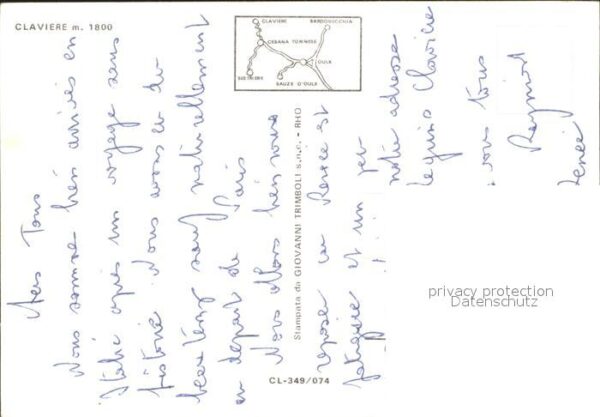 CLAVIERE m. 1800
CLAVIERE
BARDONECCHIA
CESANA TORINESE
OULX
SESTRIERE
SAUZE D'OULX
Stampata da GIOVANNI TRIMBOLI s.n.c. - RHO
CL-349/074
privacy protection
Datenschutz
Tous
Nous somme bien arrivés en
Italie après un voyage sans
histoire Nous avons eu du
beau temps sauf naturellement
au départ de Paris
Nous allons bien nous
reposer car Renée est
fatiguée et un peu
notre adresse
Claviere
a vous tous
Raymond
Renée